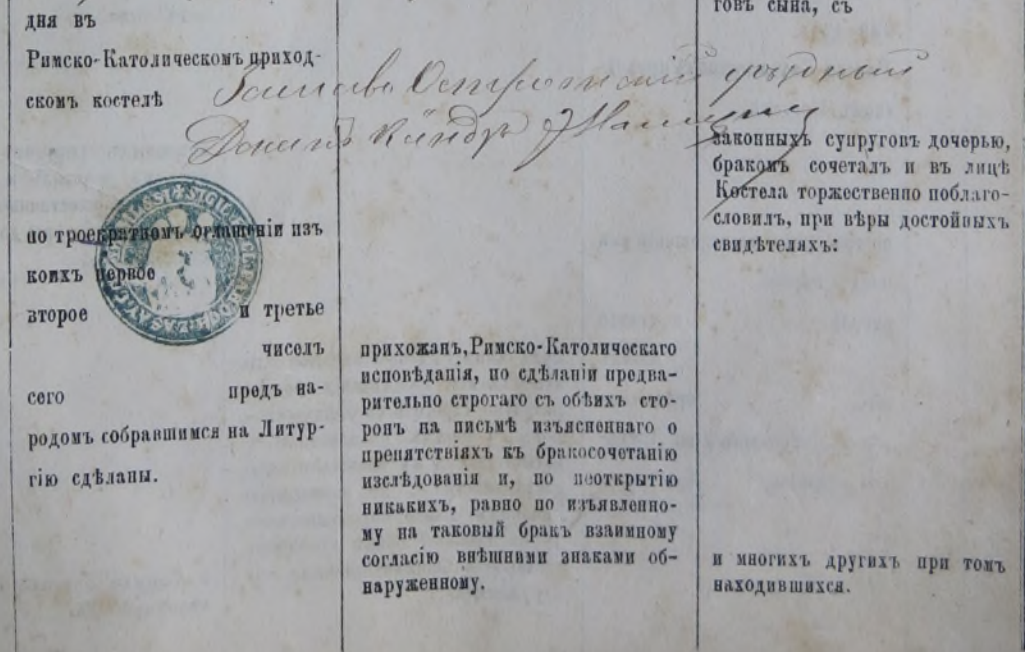 дня въ
Римско-Католическомъ приход-
скомъ костелѣ
по троекратномъ оглашеніи изъ
коихъ первое
второе и третье
чиселъ
сего предъ на-
родомъ собравшимся на Литур-
гію сдѣланы.
Заславо Острожскій уѣздный
Деканъ Ксендзъ
прихожанъ, Римско-Католическаго
исповѣданія, по сдѣланіи предва-
рительно строгаго съ обѣихъ сто-
ронъ на письмѣ изъясненнаго о
препятствіяхъ къ бракосочетанію
изслѣдованія и, по неоткрытію
никакихъ, равно по изъявленно-
му на таковый бракъ взаимному
согласію внѣшними знаками об-
наруженному,
говъ сына, съ
законныхъ супруговъ дочерью,
бракомъ сочеталъ и въ лицѣ
Костела торжественно поблаго-
словилъ, при вѣры достойныхъ
свидѣтеляхъ:
и многихъ другихъ при томъ
находившихся.